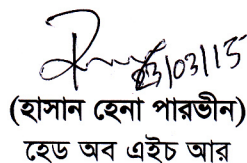 03/03/15
(হাসান হেনা পারভীন)
হেড অব এইচ আর